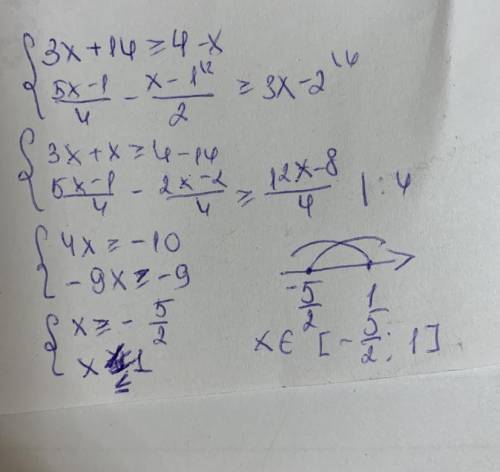 { 3x + 14 ≥ 4 - x
{ (5x-1)/4 - (x-1)/2 ^{(2} ≥ 3x - 2 ^{(4}
{ 3x + x ≥ 4 - 14
{ (5x-1)/4 - (2x-2)/4 ≥ (12x-8)/4 | : 4
{ 4x ≥ -10
{ -9x ≥ -9
{ x ≥ - 5/2
{ x ≤ 1
-5/2 1
x ∈ [-5/2; 1]